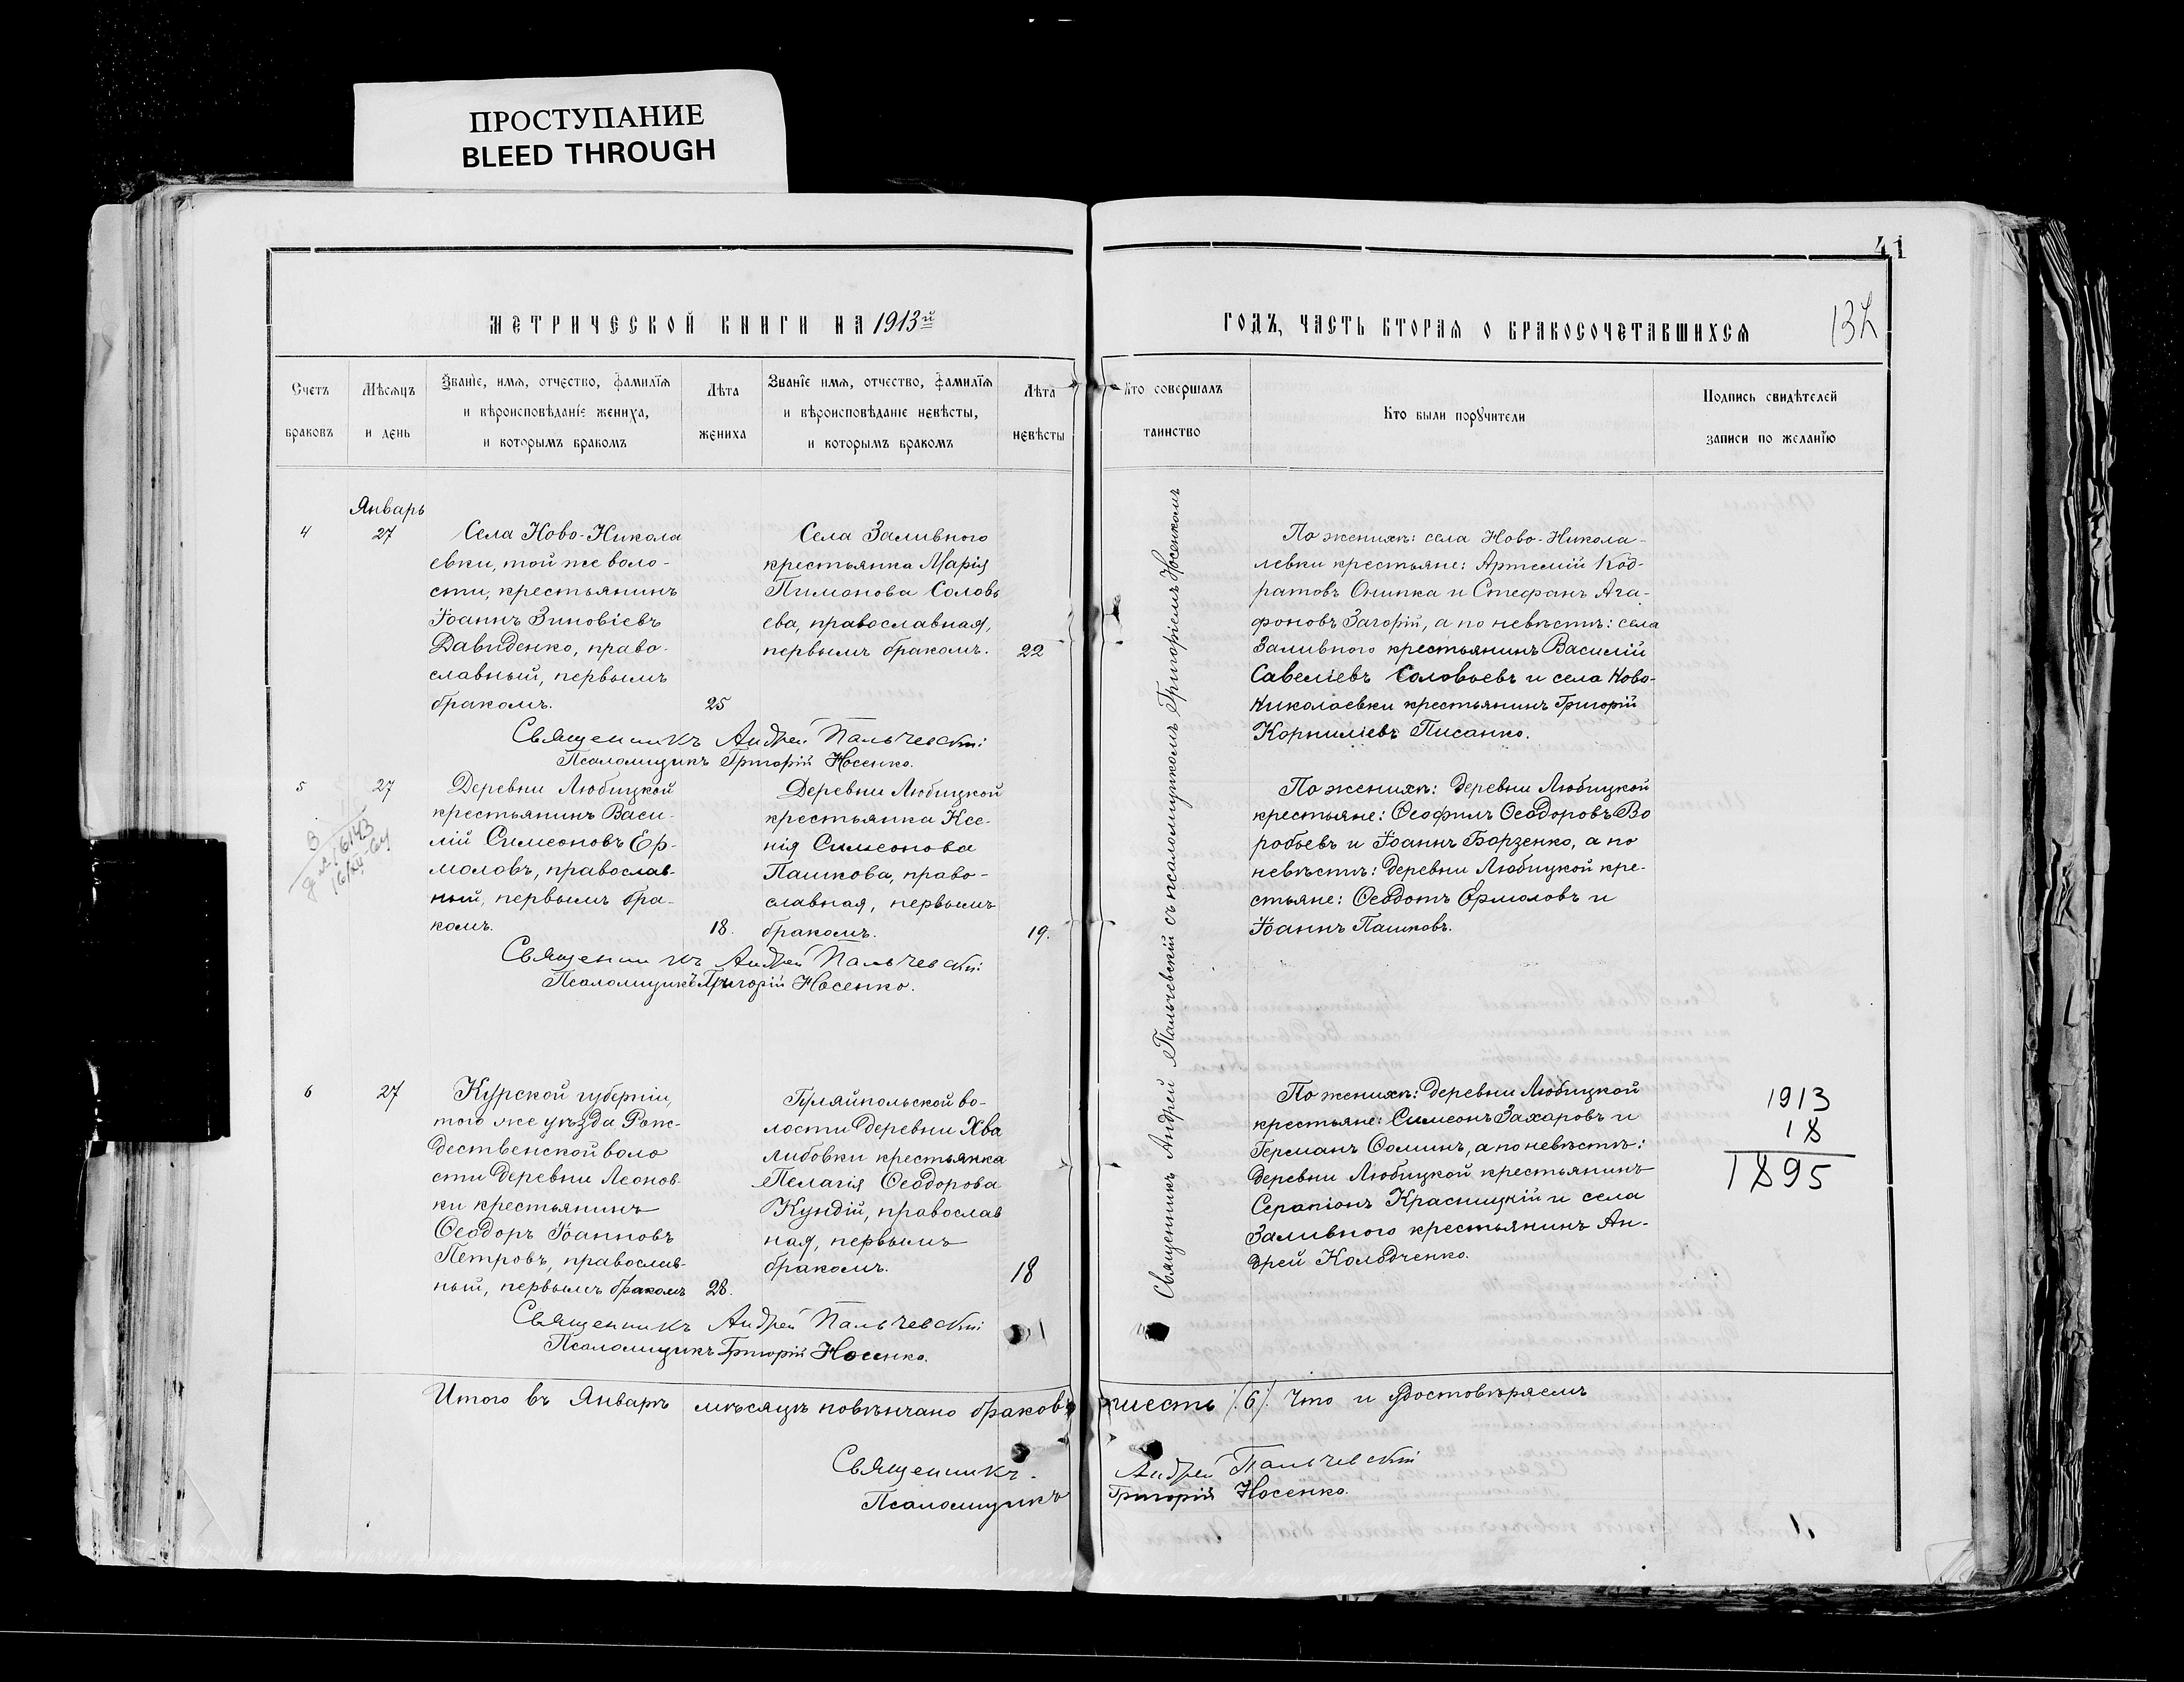 ПРОСТУПАНИЕ
BLEED THROUGH
41
132
МЕТРИЧЕСКОЙ КНИГИ НА 1913й
ГОДЪ, ЧАСТЬ ВТОРАЯ О БРАКОСОЧЕТАВШИХСЯ
Счетъ браковъ
Мѣсяцъ и день
Званіе, имя, отчество, фамилія
и вѣроисповѣданіе жениха,
и которымъ бракомъ
Лѣта жениха
Званіе имя, отчество, фамилія
и вѣроисповѣданіе невѣсты,
и которымъ бракомъ
Лѣта невѣсты
Кто совершалъ таинство
Кто были поручители
Подпись свидѣтелей
записи по желанію
Январь
4
27
Села Ново-Никола
евки, той же воло-
сти, крестьянинъ
Іоаннъ Зиновіевъ
Давиденко, право-
славный, первымъ
бракомъ.
25
Села Заливного
крестьянка Марія
Пимонова Соловь
ева, православная,
первымъ бракомъ.
22
Священникъ Андрей Пальчевскій
Псаломщикъ Григорій Носенко.
По женихѣ: села Ново-Никола-
левки крестьяне: Артемій Код-
ратовъ Онипка и Стефанъ Ага-
фоновъ Загорій, а по невѣстѣ: села
Заливного крестьянинъ Василій
Савеліевъ Соловьевъ и села Ново-
Николаевки крестьянинъ Григорій
Корниліевъ Писанко.
5
27
Деревни Любицкой
крестьянинъ Васи-
лій Симеоновъ Ер-
моловъ, православ-
ный, первымъ бра-
комъ.
18.
Деревни Любицкой
крестьянка Ксе-
нія Симеонова
Пашкова, право-
славная, первымъ
бракомъ.
19.
Священникъ Андрей Пальчевскій
Псаломщикъ Григорій Носенко.
По женихѣ: деревни Любицкой
крестьяне: Ѳеофилъ Ѳеодоровъ Во
робьевъ и Іоаннъ Борзенко, а по
невѣстѣ: деревни Любицкой кре-
стьяне: Ѳеодотъ Ермоловъ и
Іоаннъ Пашковъ.
6
27
Курской губерніи,
того же уѣзда Рож-
дественской воло
сти деревни Леонов-
ки крестьянинъ
Ѳеодоръ Іоанновъ
Петровъ, православ-
ный, первымъ бракомъ
28.
Гуляйпольской во-
лости деревни Хва
либовки крестьянка
Пелагія Ѳеодорова
Кундій, православ
ная, первымъ
бракомъ.
18
Священникъ Андрей Пальчевскій
Псаломщикъ Григорій Носенко.
По женихѣ: деревни Любицкой
крестьяне: Симеонъ Захаровъ и
Германъ Ѳоминъ, а по невѣстѣ:
деревни Любицкой крестьянинъ
Серапіонъ Красницкій и села
Заливного крестьянинъ Ан-
дрей Колодченко.
1913
18
1895
Священникъ Андрей Пальчевскій съ псаломщикомъ Григоріемъ Носенкомъ
Итого въ Январѣ мѣсяцѣ повѣнчано браковъ шесть (6). Что и удостовѣряемъ
Священникъ Андрей Пальчевскій
Псаломщикъ Григорій Носенко.